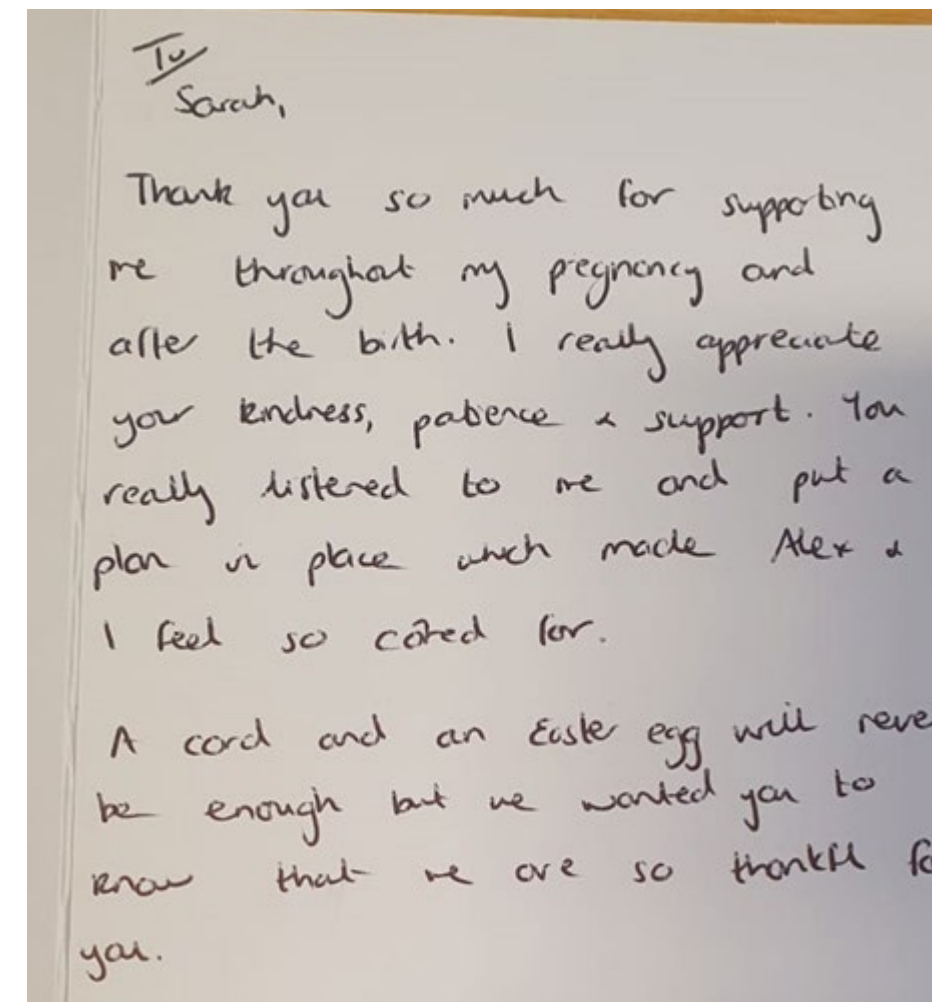 To
Sarah,
Thank you so much for supporting
me throughout my pregnancy and
after the birth. I really appreciate
your kindness, patience & support. You
really listened to me and put a
plan in place which made Alex &
I feel so cared for.
A card and an Easter egg will neve
be enough but we wanted you to
know that we are so thankful fo
you.